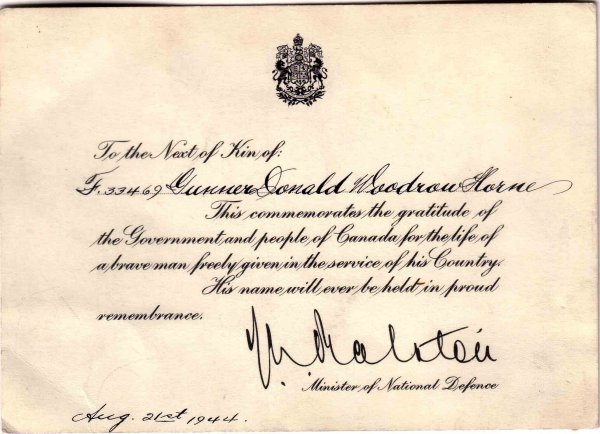 To the Next of Kin of:
F.33469 Gunner Donald Woodrow Horne
This commemorates the gratitude of
the Government and people of Canada for the life of
a brave man freely given in the service of his Country.
His name will ever be held in proud
remembrance.
Ralston
Minister of National Defence
Aug. 21st 1944.